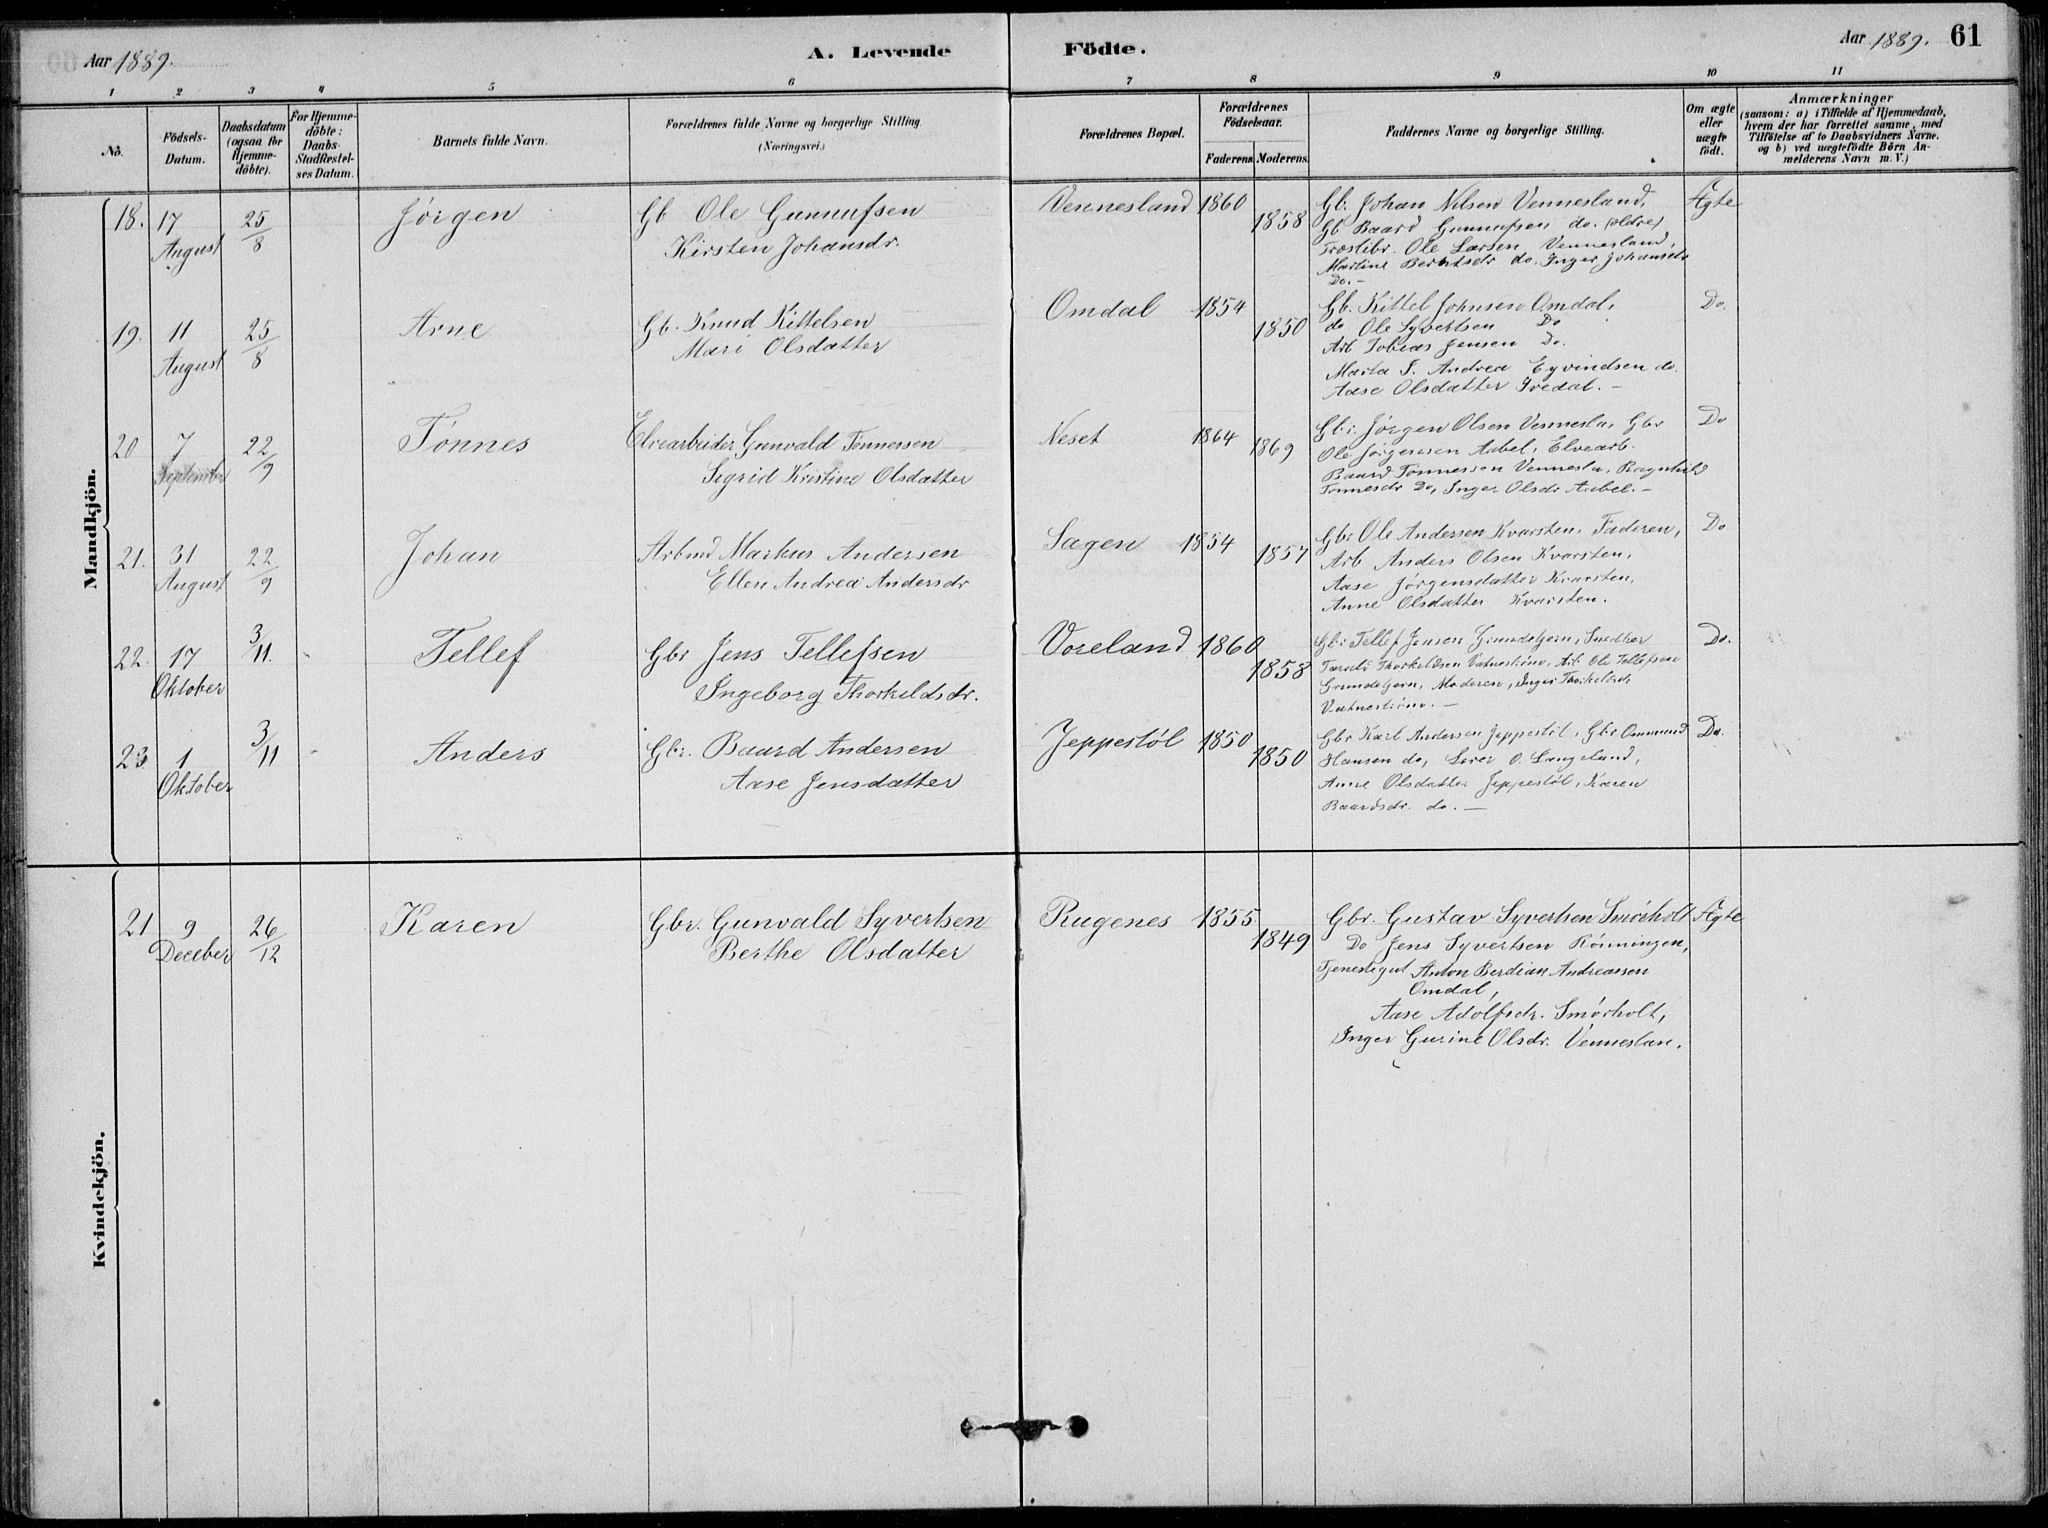 Aar 1889.
A. Levende Födte.
Aar 1889. 61
1 2 3 4 5 6 7 8 9 10 11
No.
Födsels-Datum.
Daabsdatum (ogsaa for Hjemme-döbte).
For Hjemme-döbte: Daabs-Stadfæstel-ses Datum.
Barnets fulde Navn.
Forældrenes fulde Navne og borgerlige Stilling. (Næringsvei.)
Forældrenes Bopæl.
Forældrenes Födselsaar.
Faderens Moderens.
Faddernes Navne og borgerlige Stilling.
Om ægte eller uægte födt.
Anmærkninger
(saasom: a) i Tilfælde af Hjemmedaab, hvem der har forrettet samme, med Tilföielse af to Daabsvidners Navne. og b) ved uægtefödte Börn An-melderens Navn m. V.)
Mandkjön.
18. 17 August 25/8 Jørgen
Gb Ole Gunnufsen
Kirsten Johansdr.
Vennesland 1860 1858
Gb. Johan Nilsen Vennesland,
Gb Baard Gunnufsen do. (ældre)
Ole Larsen Vennesland,
Martine Berntsdr do. Inger Johansdr
Do. -
Ægte
19. 11 August 25/8 Arne
Gb. Knud Kittelsen
Mari Olsdatter
Omdal 1854 1850
Gb. Kittel Johnsen Omdal,
do Ole Syvertsen Do
Arb Tobias Jensen Do.
Marta S. Andrea Eyvindsen do.
Aase Olsdatter Ivedal. -
Do.
20 7 September 22/9 Tønnes
Elvearbeider Gunvald Tønnessen
Sigrid Kristine Olsdatter
Neset 1864 1869
Gbr. Jørgen Olsen Vennesla, Gbr
Ole Jørgensen Aabel, Elvearb.
Baard Tønnessen Vennesla, Ragnhild
Tønnesdr Do, Inger Olsdr Aabel. -
Do
21. 31 August 22/9 Johan
Arbmd Markus Andersen
Ellen Andrea Andersdr
Sagen 1854 1857
Gbr Ole Andersen Kvarsten, Faderen,
Arb Anders Olsen Kvarsten,
Aase Jørgensdatter Kvarsten,
Anne Olsdatter Kvarsten.
Do
22. 17 Oktober 3/11. Tellef
Gbr Jens Tellefsen
Ingeborg Thorkildsdr.
Voreland 1860 1858
Gbr Tellef Jensen Grundetjern, Snedker
Thorkildsen Vatnestrøm, Arb Ole Tellefsen
Grundetjern, Moderen, Inger Thorkildsdr
Vatnestrøm. -
Do.
23 1 Oktober 3/11 Anders
Gbr. Baard Andersen
Aase Jensdatter
Jeppestøl 1850 1850
Gbr Karl Andersen Jeppestøl, Gbr Ommund
Hansen do, O. Langeland,
Anne Olsdatter Jeppestøl, Karen
Baardsdr. do. -
Do.
Kvindekjön.
21 9 Deceber 26/12 Karen
Gbr. Gunvald Syvertsen
Berthe Olsdatter
Rugenes 1855 1849
Gbr. Gustav Syvertsen Smørholt
Do Jens Syvertsen Rønningen,
Tjenestegut Anton Berdian Andreassen
Omdal,
Aase Adolfsdr. Smørholt,
Inger Gurine Olsdr. Venneslan.
Ægte